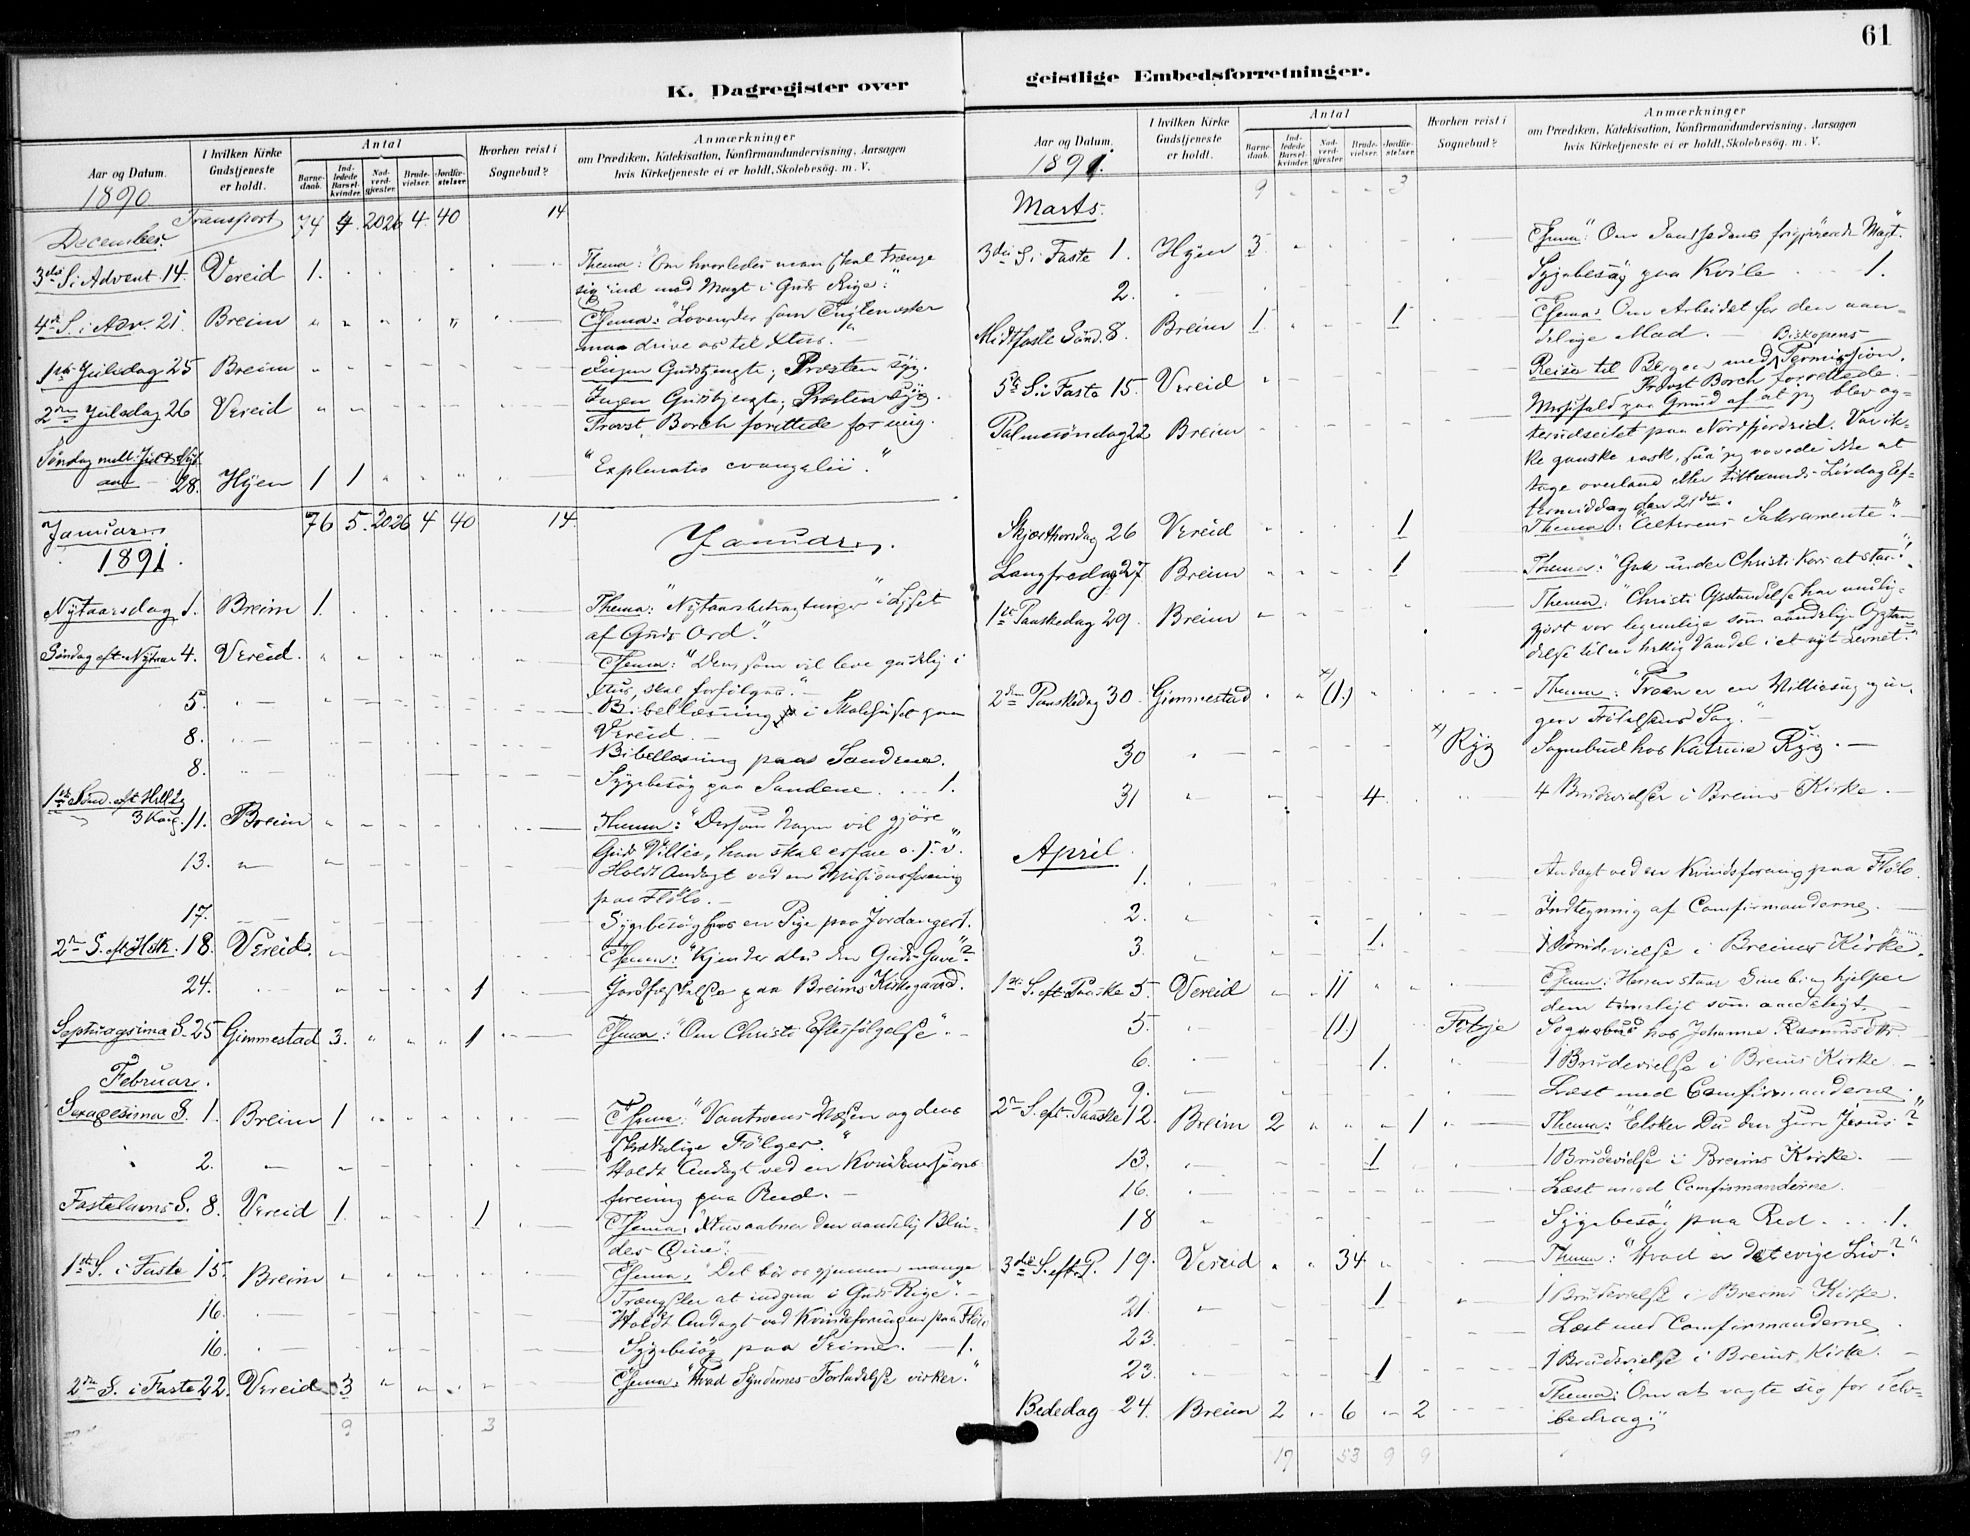 61
K. Dagregister over
geistlige Embedsforretninger.
Aar og Datum.
I hvilken Kirke Gudstjeneste er holdt.
Antal
Barnedaab.
Indledede Barselkvinder.
Nadverdgjæster.
Brudevielser.
Jordfæstelser.
Hvorhen reist i Sognebud?
Anmærkninger
om Prædiken, Katekisation, Konfirmandundervisning, Aarsagen
hvis Kirketjeneste ei er holdt, Skolebesøg. m. V.
1890
Transport 74 4 2026 4 40 14
December.
3die S. i Advent 14. Vereid 1. Thema: "Om hvorledes man skal trænge
sig ind med Magt i Guds Rige."
4de S. i Adv. 21. Breim Thema: "Loven, der som Tugtemester
maa drive os til Xtus."
1ste Juledag 25 Breim Ingen Gudstjeneste; Præsten syg.
2den Juledag 26 Vereid Ingen Gudstjeneste; Præsten syg.
Provst Borch forrettede for mig.
Søndag mell. Jul & Nyt
aar 28. Hyen 1 1 "Explenatio evangelii."
76 5 2026 4 40 14
Januar
1891.
Januar.
Nytaarsdag 1. Breim 1. Thema: "Nytaarsbetragtninger i Lyset
af Guds Ord."
Søndag eft. Nytaar 4. Vereid. Thema: "Den, som vil leve gudelig i
Xtus, skal forfølges."
5. Bibellæsning i Skolehuset paa
Vereid.
8. Bibellæsning paa Sandene.
8. Sygebesøg paa Sandene. 1.
1ste Sønd. eft. Hellig
3 Kong. 11. Breim Thema: "Dersom Nogen vil gjøre
Guds Villie, han skal erfare o. s. v."
13. Holdt Andagt ved en Missionsforening
paa Fløto.
17. Sygebesøg hos en Pige paa Jordanger 1.
2den S. eft. H3K. 18. Vereid. Thema: "Kjender du den Guds Gave"?
24. 1 Jordfæstelse paa Breims Kirkegaard.
Septuagsima S. 25 Gimmestad 3. 1 Thema: "Om Christi Efterfølgelse".
Februar.
Sexagesima S. 1. Breim 1 Thema: "Vantroens Væsen og dens
skrækelige Følger."
2. Holdt Andagt ved en Kvindemissions-
forening paa Reed.
Fastelavns S. 8. Vereid 1. 1 Thema: "Xtus aabner den aandelig Blin-
des Øine".
1ste S. i Faste 15. Breim Thema: "Det bør os gjennem mange
Trængsler at indgaa i Guds Rige".
16. Holdt Andagt ved Kvindeforeningen paa Fløto
16. Sygebesøg paa Seime. 1.
2den S. i Faste 22. Vereid 3 Thema: "Hvad Syndernes Forladelse virker."
9 3
Aar og Datum.
I hvilken Kirke Gudstjeneste er holdt.
Antal
Barnedaab.
Indledede Barselkvinder.
Nadverdgjæster.
Brudevielser.
Jordfæstelser.
Hvorhen reist i Sognebud?
Anmærkninger
om Prædiken, Katekisation, Konfirmandundervisning, Aarsagen
hvis Kirketjeneste ei er holdt, Skolebesøg. m. V.
1891.
9 3
Marts.
3die S. i Faste 1. Hyen 3. Thema: Om Sandhedens frigjørende Magt.
2. Sygebesøg paa Kvile 1.
Midtfaste Sønd. 8. Breim 1. 1 Thema: Om Arbeidet for den aan-
delige Mad.
5te S. i Faste 15. Vereid Reise til Bergen med Biskopens Permission.
Provst Borch forrettede.
Palmesøndag 22 Breim Messefald paa Grund af at jeg blev ag-
terudseilet paa Nordfjordeid. Var ik-
ke ganske rask, saa jeg vovede ikke at
tage overland eller tilvands Lördag Ef-
termiddag den 21de.
Skjærthorsdag 26 Vereid 1 Thema: "Alterens Sakramente".
Langfredag 27. Breim 1 Thema: "Gak under Christi Kors at staa!"
1ste Paaskedag 29. Breim Thema: "Christi Opstandelse har mulig-
gjort vor legemlige som aandelige Opstan-
delse til en hellig Vandel i et nyt Levnet."
2den Paaskedag 30 Gimmestad x) (1.) Thema: "Troen er en Villiesag og in-
gen Følelsens Sag."
30 x) Ryg Sognebud hos Katrine Ryg.
31 4. 4 Brudevielser i Breims Kirke.
April
1. Andagt ved en Kvindeforening paa Fløto.
2. Indtegning af Comfirmanderne.
3. 1. 1 Brudevielse i Breims Kirke.
1ste S. eft. Paaske 5. Vereid 11 Thema: Herren staar Sine bi og hjelper
dem timeligt som aandeligt.
5. (1.) Sognebud hos Johanne Rasmusdtr.
6. 1. 1 Brudevielse i Breims Kirke.
9. Læst med Comfirmanderne.
2den S. eft. Paaske 12. Breim 2 1 Thema: "Elsker Du den Herre Jesus"?
13. 1 1 Brudevielse i Breims Kirke.
16. Læst med Comfirmanderne.
18 Sygebesøg paa Red. 1.
3die S. eft. P. 19. Vereid 34 Thema: "Hvad er det evige Liv?"
21. 1 1 Brudevielse i Breims Kirke.
23 Læst med Comfirmanderne
23. 1 1 Brudevielse i Breims Kirke.
Bededag 24. Breim 2 6 2 Thema: Om at vogte sig for Selv-
bedrag."
19 53 9 9